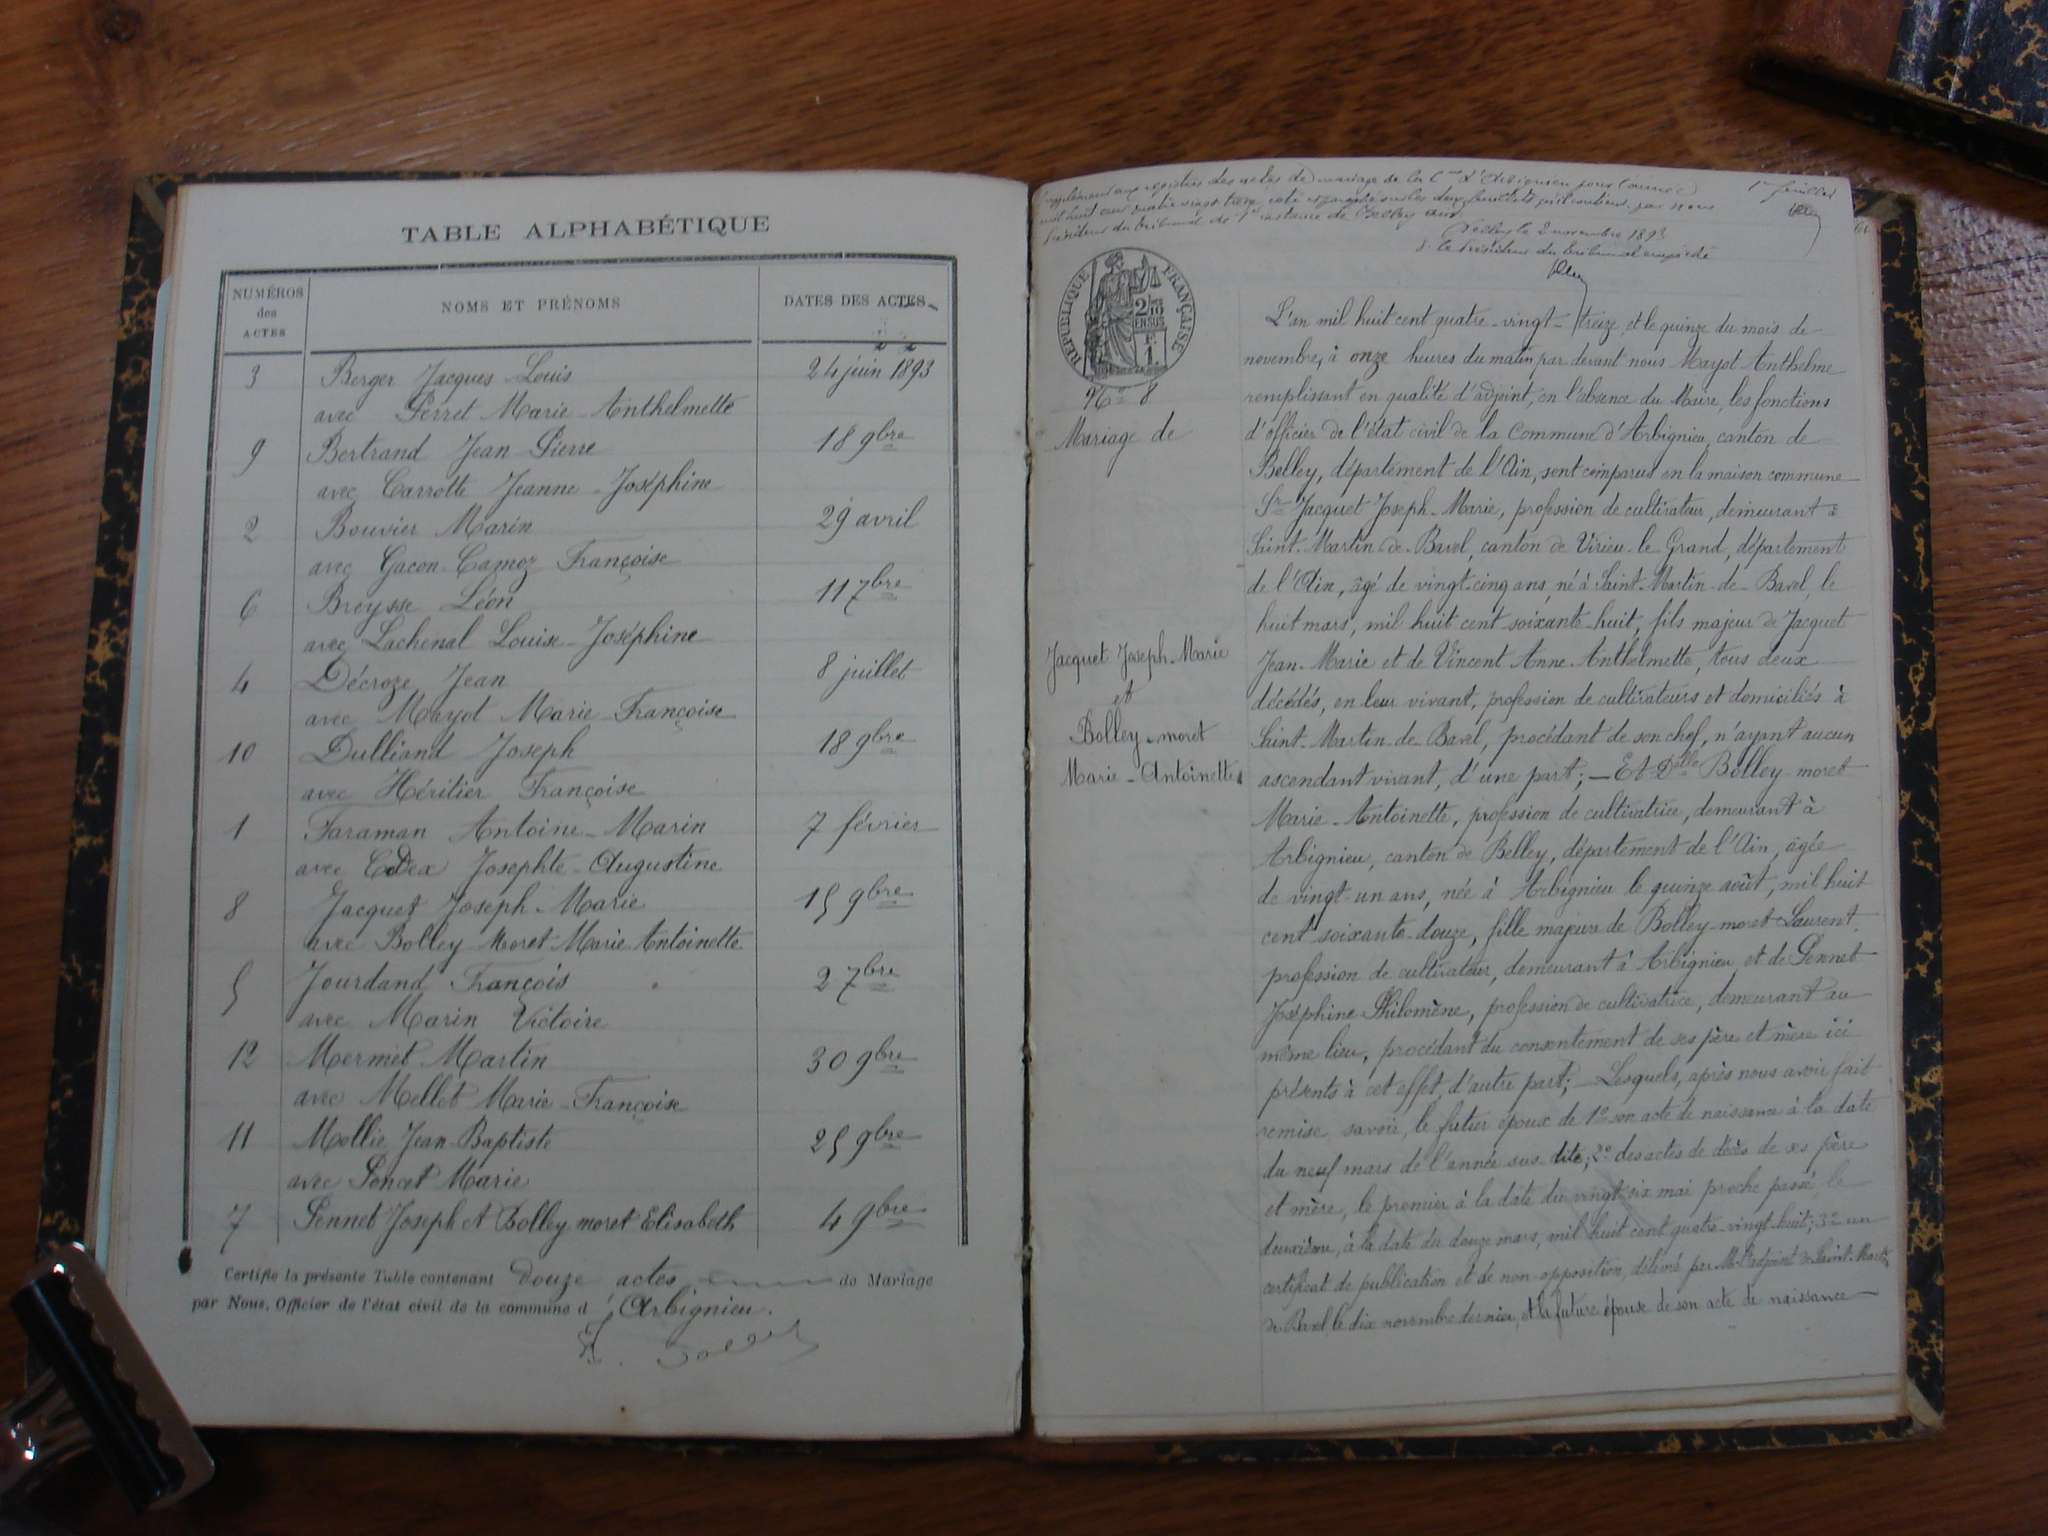 TABLE ALPHABÉTIQUE
NUMÉROS des ACTES
NOMS ET PRÉNOMS
DATES DES ACTES
3 Berger Jacques Louis 24 juin 1893
avec Perret Marie Anthelmette
9 Bertrand Jean Pierre 18 9bre
avec Carrotte Jeanne-Joséphine
2 Bouvier Marin 29 avril
avec Gacon-Camoz Françoise
6 Breysse Léon 11 7bre
avec Lachenal Louise-Joséphine
4 Décroze Jean 8 juillet
avec Mayot Marie-Françoise
10 Dulliand Joseph 18 9bre
avec Héritier Françoise
1 Faraman Antoine-Marin 7 février
avec Josephte-Augustine
8 Jacquet Joseph-Marie 15 9bre
avec Bolley Moret Marie Antoinette
5 Jourdand François 2 7bre
avec Marin Victoire
12 Mermet Martin 30 9bre
avec Mellet Marie-Françoise
11 Mollie Jean-Baptiste 25 9bre
avec Poncet Marie
7 Pennet Joseph et Bolley moret Elisabeth 4 9bre
Certifie la présente Table contenant douze actes de Mariage
par Nous, Officier de l'état civil de la commune d'Arbignieu.
1er feuillet
Supplément aux registres des actes de mariage de la Cne d'Arbignieu pour l'année
mil huit cent quatre vingt treize, coté et paraphé sur les deux feuillets qu'il contient par nous
Président du tribunal de 1re instance de Belley Ain
Belley le 2 novembre 1893
P. le Président du tribunal empêché
RÉPUBLIQUE FRANÇAISE
2/10 EN SUS
F. 1.
No 8
Mariage de
Jacquet Joseph-Marie
et
Bolley-moret
Marie-Antoinette
L'an mil huit cent quatre-vingt-treize, et le quinze du mois de
novembre, à onze heures du matin par devant nous Mayot Anthelme
remplissant en qualité d'adjoint, en l'absence du Maire, les fonctions
d'officier de l'état civil de la Commune d'Arbignieu, canton de
Belley, département de l'Ain, sont comparus en la maison commune
Sr Jacquet Joseph-Marie, profession de cultivateur, demeurant à
Saint-Martin-de-Bavel, canton de Virieu-le-Grand, département
de l'Ain, âgé de vingt-cinq ans, né à Saint-Martin-de-Bavel, le
huit mars, mil huit cent soixante-huit, fils majeur de Jacquet
Jean-Marie et de Vincent Anne-Anthelmette, tous deux
décédés, en leur vivant, profession de cultivateurs et domiciliés à
Saint-Martin-de-Bavel, procédant de son chef, n'ayant aucun
ascendant vivant, d'une part; — Et Dlle Bolley-moret
Marie-Antoinette, profession de cultivatrice, demeurant à
Arbignieu, canton de Belley, département de l'Ain, âgée
de vingt-un ans, née à Arbignieu le quinze août, mil huit
cent soixante-douze, fille majeure de Bolley-moret Laurent,
profession de cultivateur, demeurant à Arbignieu et de Pennet
Joséphine Philomène, profession de cultivatrice, demeurant au
même lieu, procédant du consentement de ses père et mère ici
présents à cet effet, d'autre part; — Lesquels, après nous avoir fait
remise, savoir, le futur époux de 1o son acte de naissance à la date
du neuf mars de l'année sus-dite; 2o des actes de décès de ses père
et mère, le premier à la date du vingt-six mai proche passé, le
deuxième, à la date du douze mars, mil huit cent quatre-vingt-huit; 3o un
certificat de publication et de non-opposition, délivré par M. l'adjoint de Saint-Martin
de Bavel, le dix novembre dernier, et la future épouse de son acte de naissance